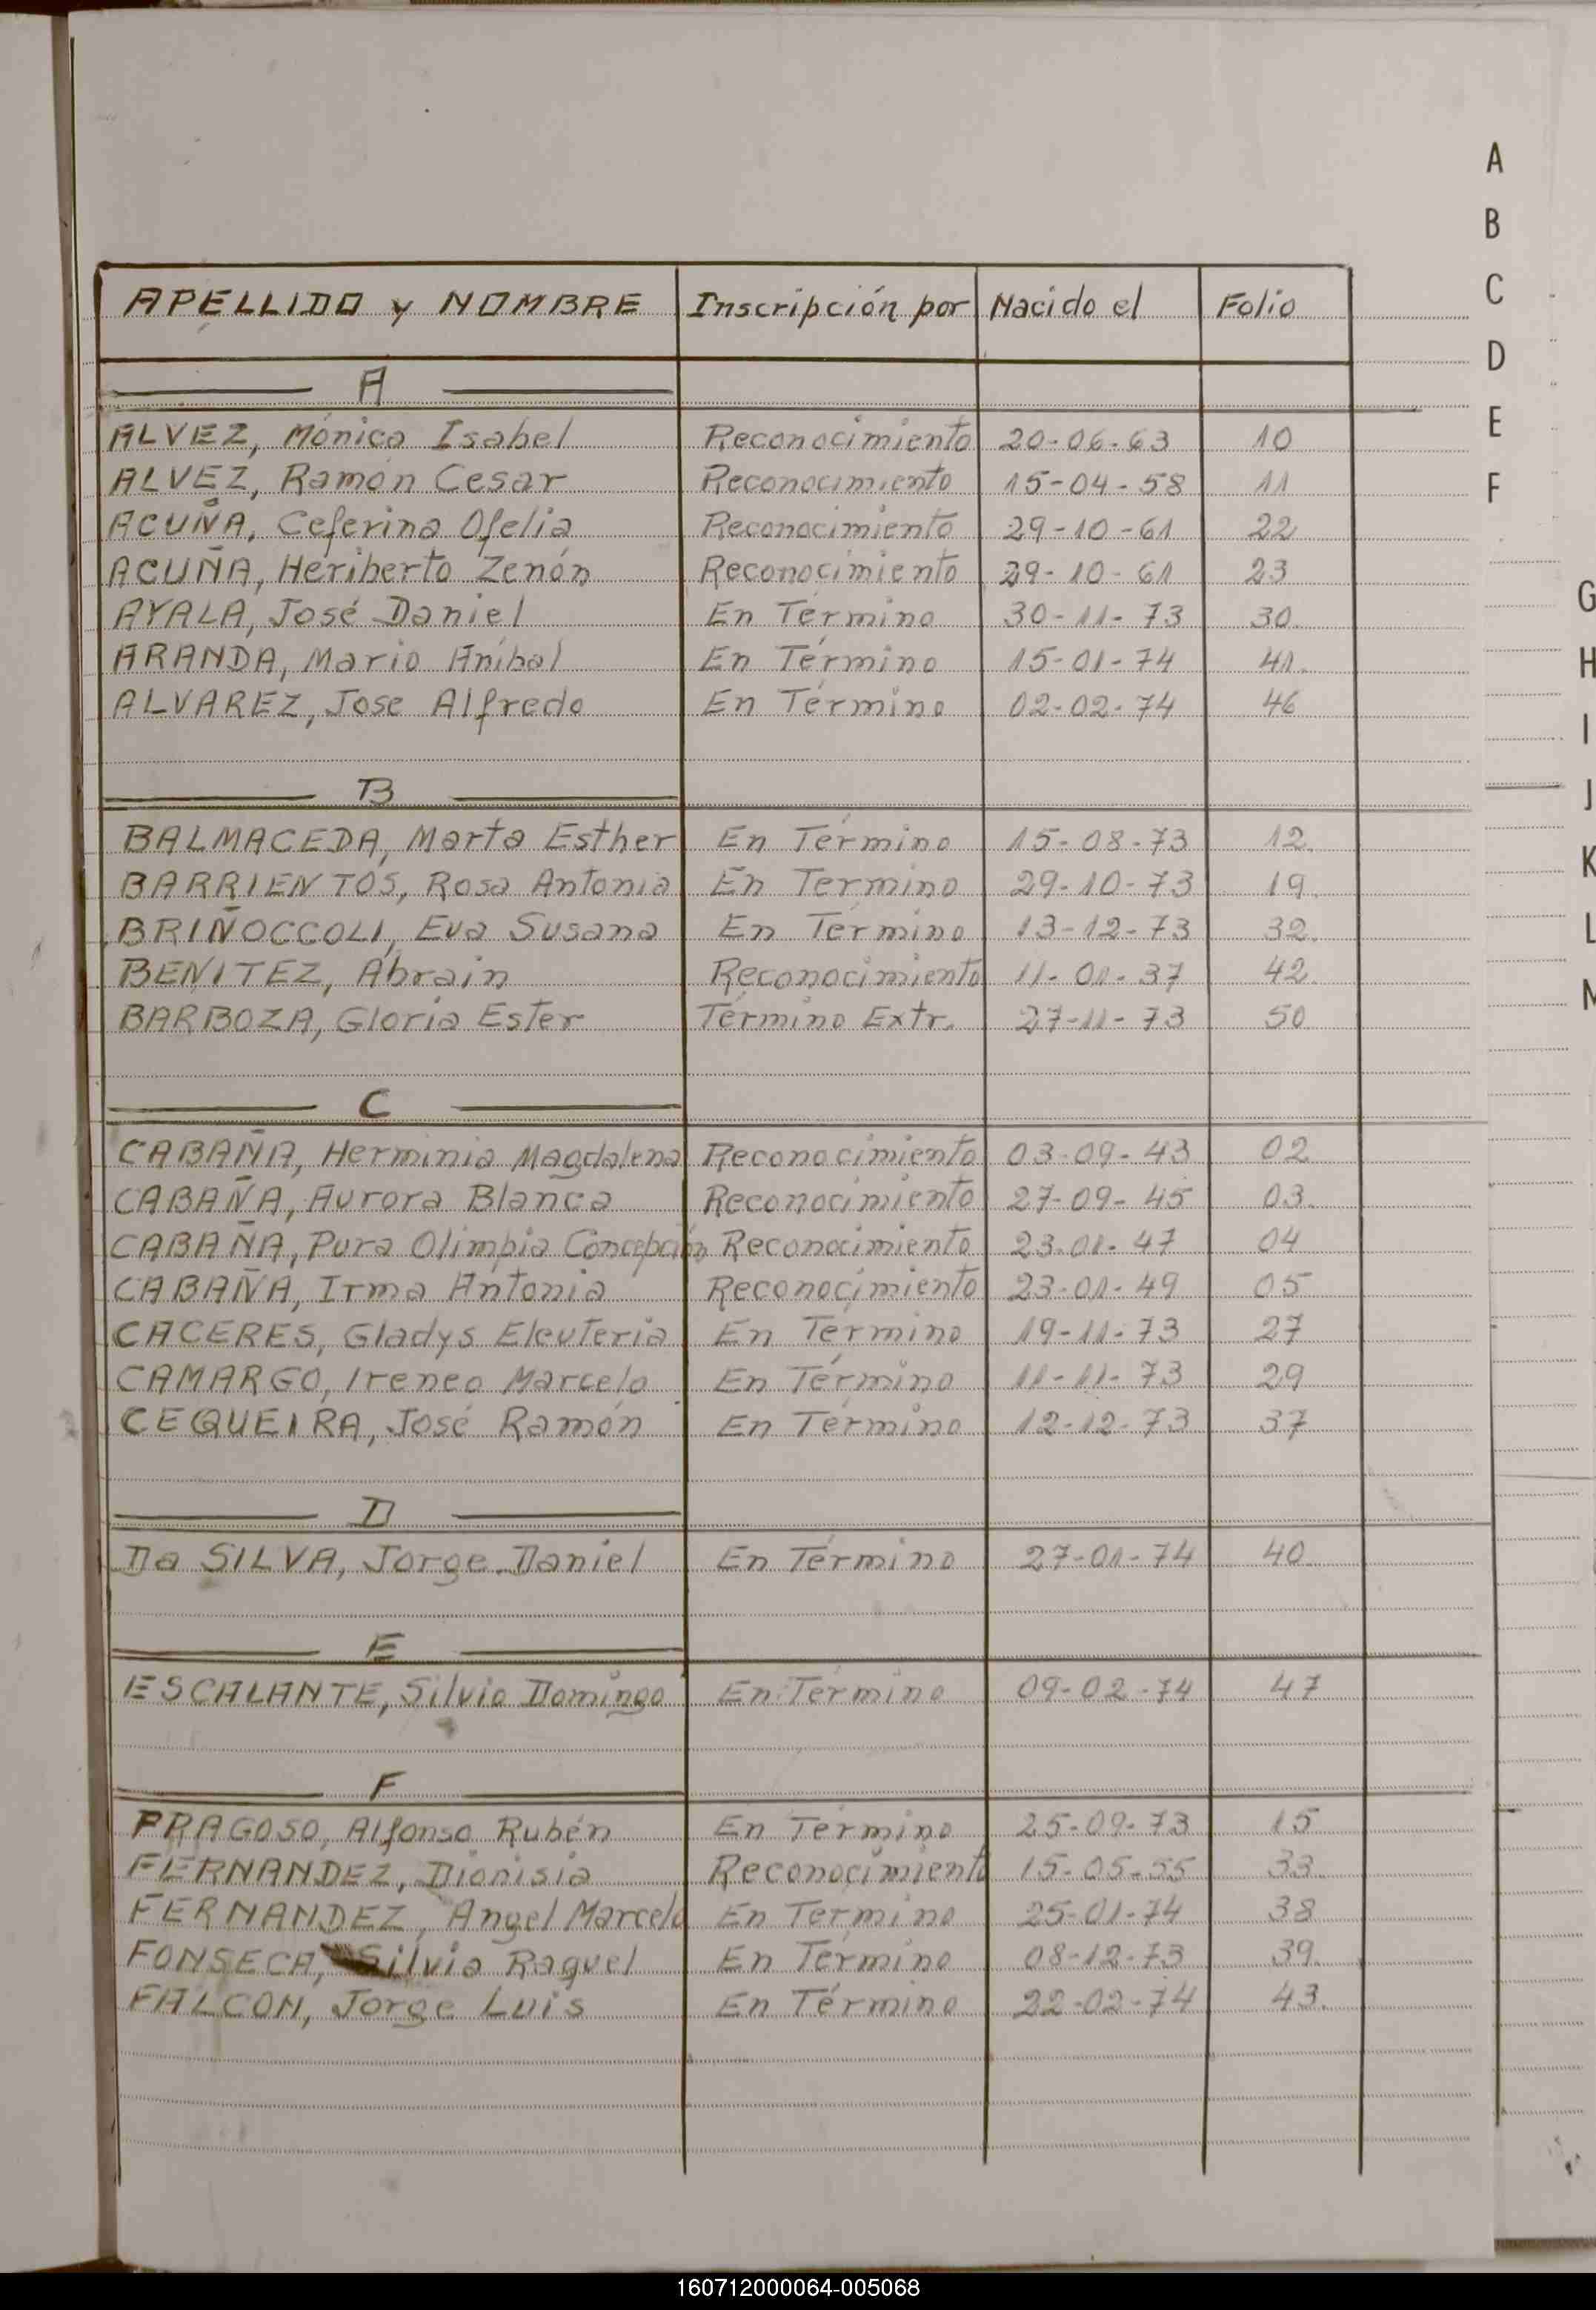 A
B
C
D
E
F
G
H
I
J
K
L
M
APELLIDO y NOMBRE Inscripción por Nacido el Folio
A
ALVEZ, Mónica Isabel Reconocimiento 20-06-63 10
ALVEZ, Ramón Cesar Reconocimiento 15-04-58 11
ACUÑA, Ceferina Ofelia Reconocimiento 29-10-61 22
ACUÑA, Heriberto Zenón Reconocimiento 29-10-61 23
AYALA, José Daniel En Término 30-11-73 30
ARANDA, Mario Aníbal En Término 15-01-74 41
ALVAREZ, Jose Alfredo En Término 02-02-74 46
B
BALMACEDA, Marta Esther En Término 15-08-73 12
BARRIENTOS, Rosa Antonia En Termino 29-10-73 19
BRIÑOCCOLI, Eva Susana En Término 13-12-73 32
BENITEZ, Abrain Reconocimiento 11-01-37 42
BARBOZA, Gloria Ester Término Extr. 27-11-73 50
C
CABAÑA, Herminia Magdalena Reconocimiento 03-09-43 02
CABAÑA, Aurora Blanca Reconocimiento 27-09-45 03
CABAÑA, Pura Olimpia Concepción Reconocimiento 23-01-47 04
CABAÑA, Irma Antonia Reconocimiento 23-01-49 05
CACERES, Gladys Eleuteria En Término 19-11-73 27
CAMARGO, Ireneo Marcelo En Término 11-11-73 29
CEQUEIRA, José Ramón En Término 12-12-73 37
D
Da SILVA, Jorge Daniel En Término 27-01-74 40
E
ESCALANTE, Silvio Domingo En Término 09-02-74 47
F
FRAGOSO, Alfonso Rubén En Término 25-09-73 15
FERNANDEZ, Dionisia Reconocimiento 15-05-55 33
FERNANDEZ, Angel Marcelo En Termino 25-01-74 38
FONSECA, Silvia Raquel En Término 08-12-73 39
FALCON, Jorge Luis En Término 22-02-74 43
160712000064-005068